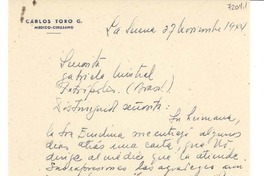 CARLOS TORO G.
MEDICO-CIRUJANO
La Serena 27 Noviembre 1944
72011
Señorita
Gabriela Mistral
Petrópolis. (Brasil)
Distinguida señorita:
Su hermana,
la Sra Emelina me entregó algunos
días atrás una carta, que Ud
dirige al médico que la atiende.